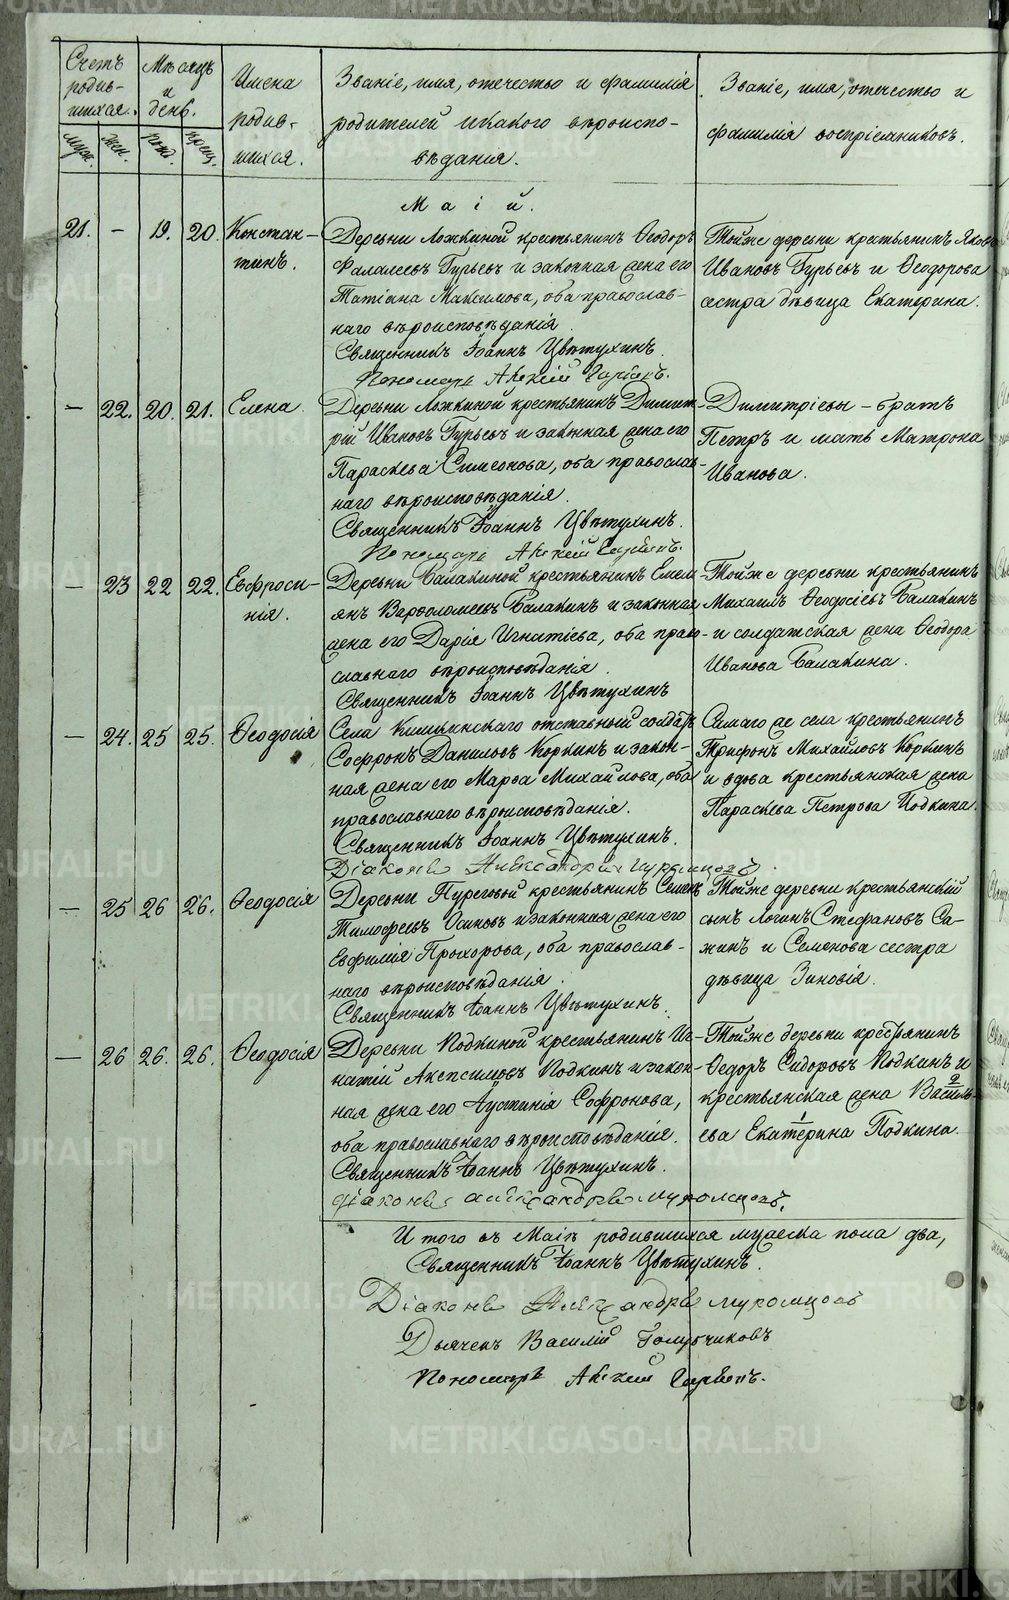 Счетъ родив-шихся.
Мѣсяцъ и день.
Имена родив-шихся.
Званіе, имя, отечество и фамилія
родителей и какого вѣроиспо-
вѣданія.
Званіе, имя, отечество и
фамилія воспріемниковъ.
муж. жен. рожд. крещ.
Маій.
21. – 19. 20. Констан-
тинъ.
Деревни Ложкиной крестьянинъ Ѳеодоръ
Фалалеевъ Гурьевъ и законная жена его
Татіана Максимова, оба православ-
наго вѣроисповѣданія.
Священникъ Іоаннъ Цвѣтухинъ.
Пономарь
Тойже деревни крестьянинъ Яковъ
Ивановъ Гурьевъ и Ѳеодорова
сестра дѣвица Екатерина.
– 22. 20. 21. Елена
Деревни Ложкиной крестьянинъ Димит-
рій Ивановъ Гурьевъ и законная жена его
Параскева Симеонова, оба православ-
наго вѣроисповѣданія.
Священникъ Іоаннъ Цвѣтухинъ.
Пономарь
Димитріевы – братъ
Петръ и мать Матрона
Иванова.
– 23 22 22. Евфроси-
нія.
Деревни Балакиной крестьянинъ Емел
янъ Варфоломеевъ Балакинъ и законная
жена его Дарія Игнатіева, оба право-
славнаго вѣроисповѣданія.
Священникъ Іоаннъ Цвѣтухинъ
Тойже деревни крестьянинъ
Михаилъ Ѳеодосіевъ Балакинъ
и солдатская жена Ѳеодора
Иванова Балакина.
– 24. 25 25. Ѳеодосія
Села отставный солдатъ
Софронъ Даниловъ Коркинъ и закон-
ная жена его Марѳа Михайлова, оба
православнаго вѣроисповѣданія.
Священникъ Іоаннъ Цвѣтухинъ.
Діаконъ Александръ Муромцовъ.
Самаго же села крестьянинъ
Трифонъ Михайловъ Коркинъ
и вдова крестьянская жена
Параскева Петрова Подкина.
– 25 26 26. Ѳеодосія
Деревни крестьянинъ Семенъ
Тимофеевъ Осиновъ и законная жена его
Евфилія Прохорова, оба православ-
наго вѣроисповѣданія.
Священникъ Іоаннъ Цвѣтухинъ.
Тойже деревни крестьянскій
сынъ Логинъ Стефановъ Са-
жинъ и Семенова сестра
дѣвица Зиновія.
– 26 26. 26. Ѳеодосія
Деревни Подкиной крестьянинъ Иг-
натій Акепсимовъ Подкинъ и закон-
ная жена его Іустинія Софронова,
оба православнаго вѣроисповѣданія.
Священникъ Іоаннъ Цвѣтухинъ.
Діаконъ Александръ Муромцовъ.
Тойже деревни крестьянинъ
Ѳедоръ Сидоровъ Подкинъ и
крестьянская жена Василь-
ева Екатерина Подкина.
Итого въ Маіѣ родившихся мужеска пола два,
Священникъ Іоаннъ Цвѣтухинъ.
Діаконъ Александръ Муромцовъ
Дьячекъ Василій Голубчиковъ
Пономарь
METRIKI.GASO-URAL.RU